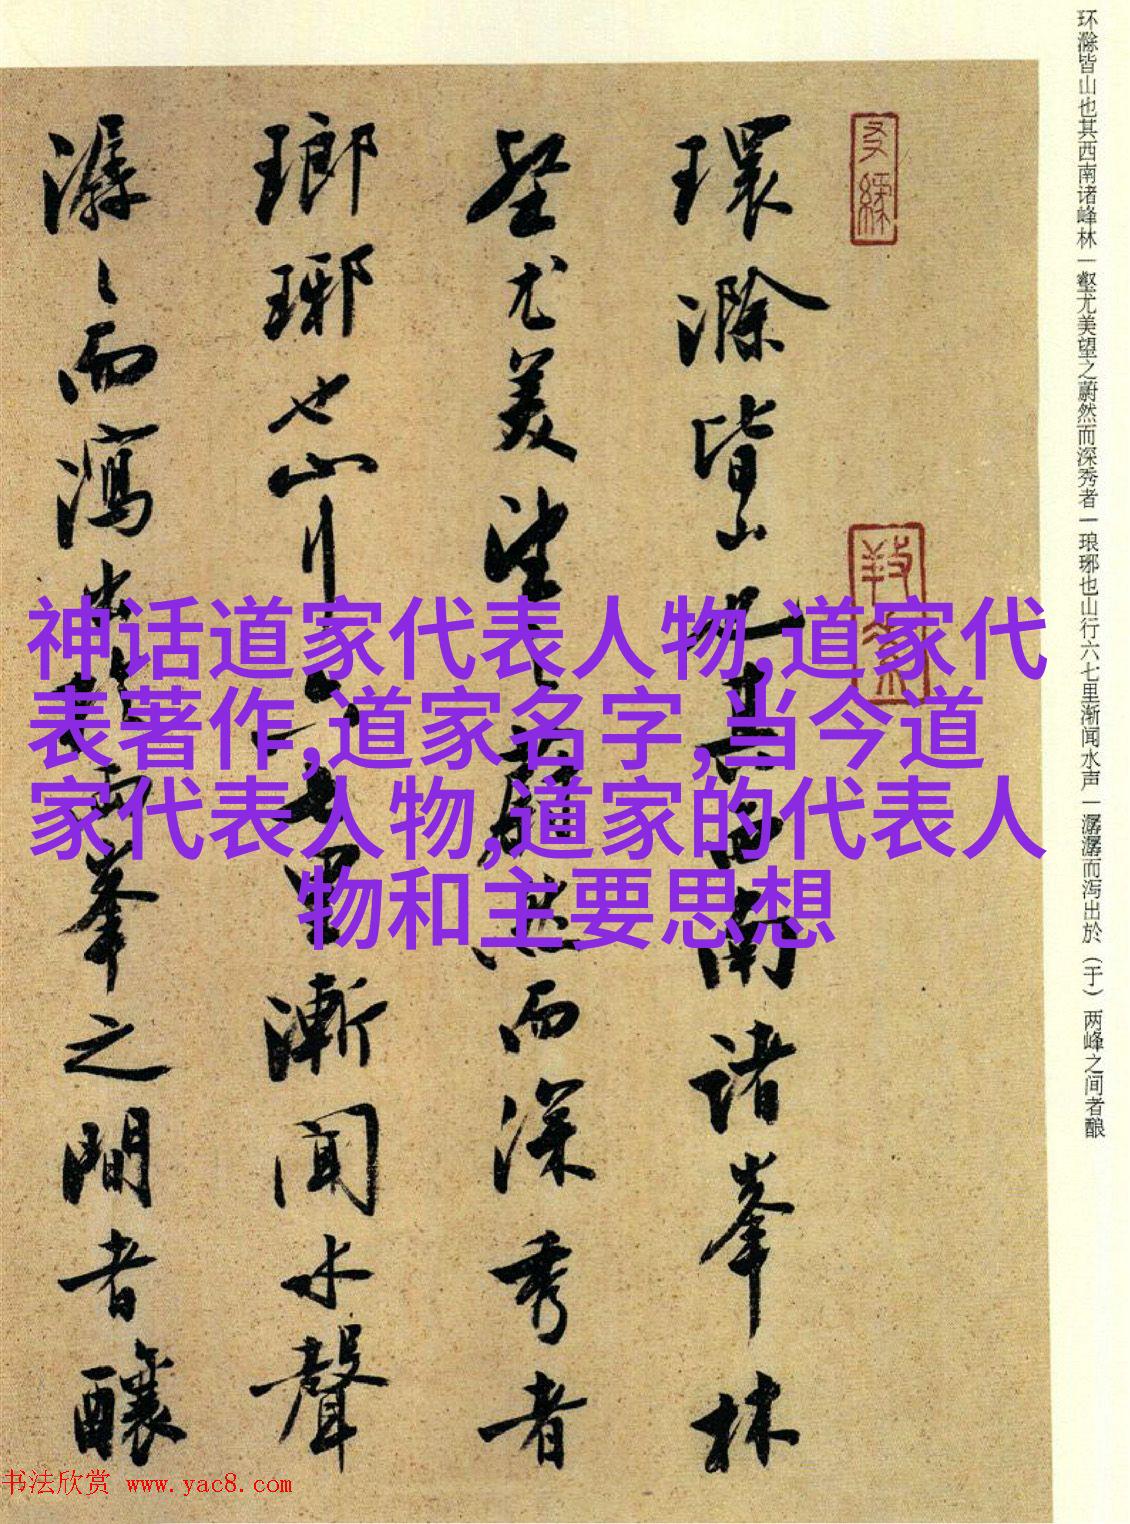 环滁皆山也其西南诸峰林一壑尤美望之蔚然而深秀者一琅琊也山行六七里渐闻水声一潺潺而泻出於（于）两峰之间者酿
環滁皆山也其西南諸峯林
壑尤美望之蔚然而深秀者
瑯琊也山行六七里漸聞水聲
潺々而瀉出於兩峯之間者釀
神话道家代表人物,道家代
表著作,道家名字,当今道
家代表人物,道家的代表人
物和主要思想
书法欣赏 www.yac8.com